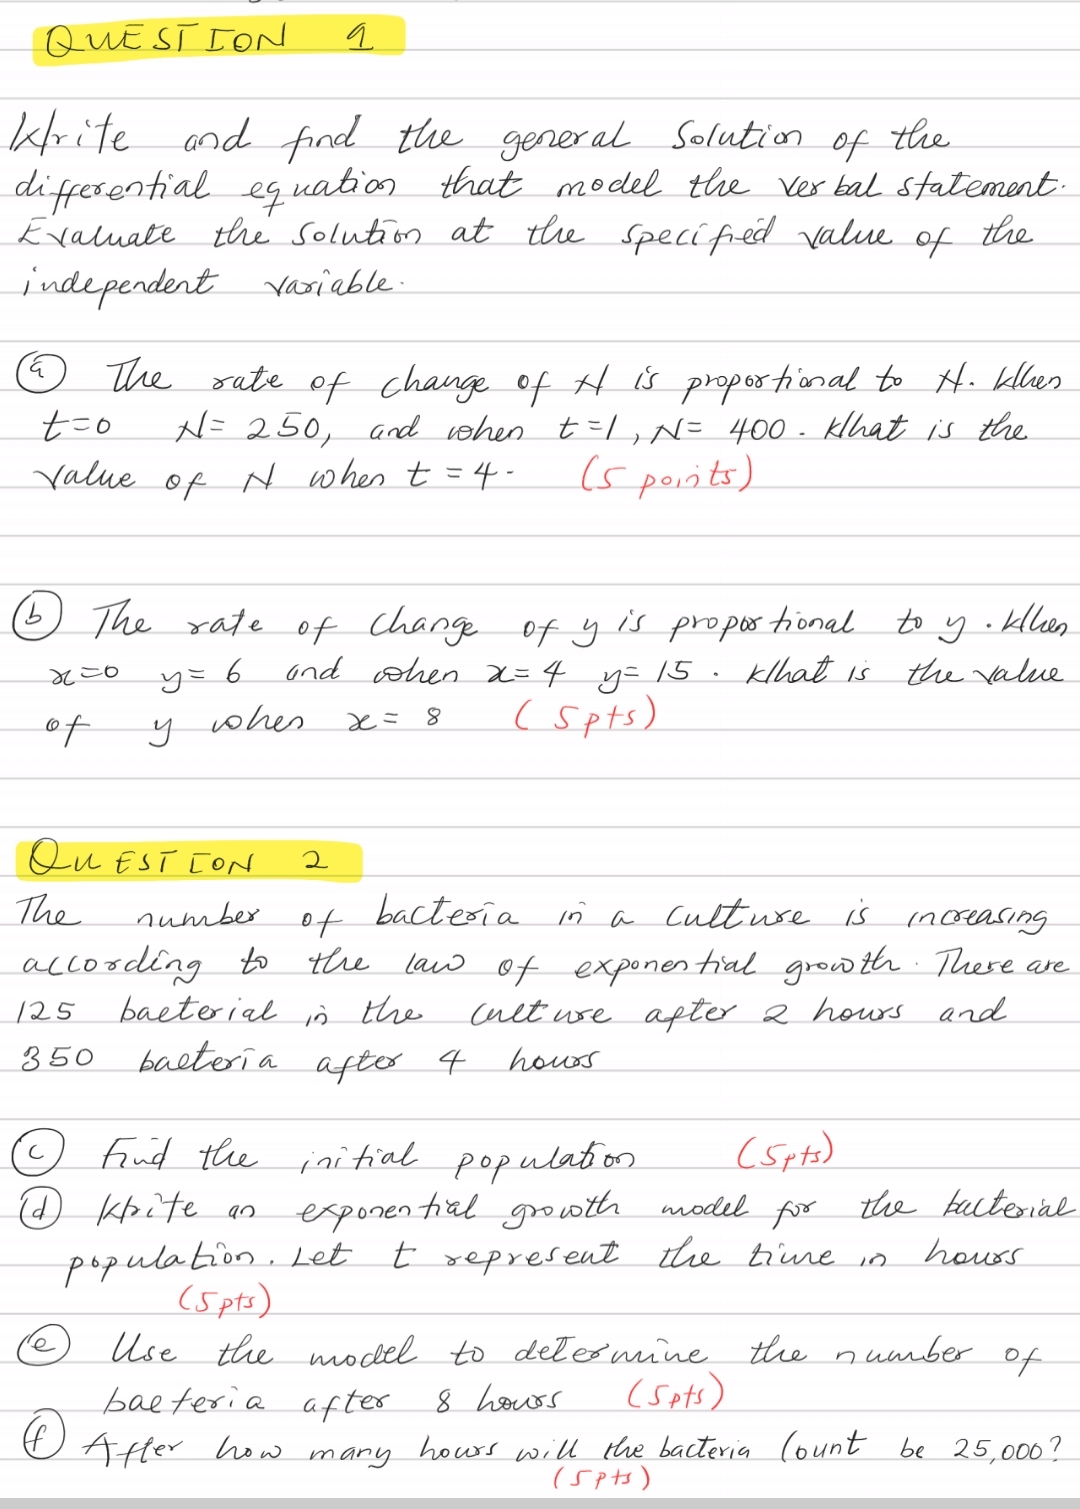 QUESTION 1
Write and find the general solution of the
differential equation that model the verbal statement.
Evaluate the solution at the specified value of the
independent variable.
(a) The rate of change of N is proportional to N. When
t=0 N= 250, and when t=1, N= 400. What is the
value of N when t = 4. (5 points)
(b) The rate of change of y is proportional to y. When
x=0 y= 6 and when x= 4 y= 15. What is the value
of y when x= 8 (5pts)
QUESTION 2
The number of bacteria in a culture is increasing
according to the law of exponential growth. There are
125 bacterial in the culture after 2 hours and
350 bacteria after 4 hours
(c) Find the initial population (5pts)
(d) Write an exponential growth model for the bacterial
population. Let t represent the time in hours
(5pts)
(e) Use the model to determine the number of
bacteria after 8 hours (5pts)
(f) After how many hours will the bacteria Count be 25,000?
(5pts)